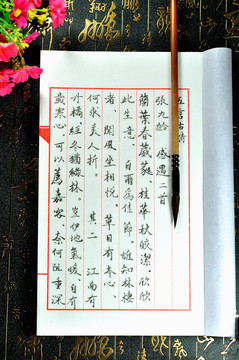 五言古詩
張九齡 感遇二首
蘭葉春葳蕤、桂華秋皎潔、欣欣
此生意、自爾為佳節、誰知林棲
者、聞風坐相悅、草木有本心、
何求美人折、其二 江南有
丹橘、經冬猶綠林、豈伊地氣暖、自有
歲寒心、可以薦嘉客、奈何阻重深